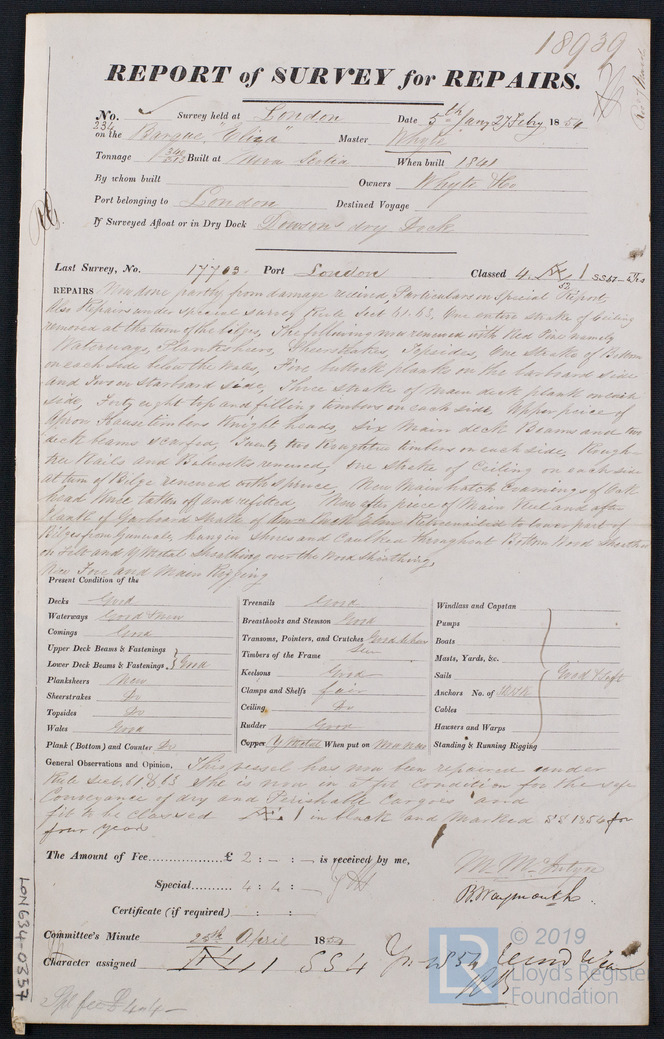 18939
REPORT of SURVEY for REPAIRS.
No. 234 Survey held at London Date 5th Jany 27 Feby 1854
on the Barque "Eliza" Master Whyte
Tonnage Built at Nova Scotia When built 1841
By whom built Owners Whyte & Co
Port belonging to London Destined Voyage
If Surveyed Afloat or in Dry Dock Dowson's dry Dock
Last Survey, No. 17703 Port London Classed 4
REPAIRS Now done partly from damage recived, Particulars on Special Report
Also Repairs under special survey Rule Sect 61. 63. One entire strake of Ceiling
removed at the turn of the bilges, The following now renewed with Red Pine namely
Waterways, Planksheers, Sheerstrakes, Topsides, One Strake of Bottom
on each side below the Wales, Five buttock planks on the larboard side
and Two on Starboard side, Three strake of Main deck plank on each
side, Forty eight top and filling timbers on each side, Upper peice of
Apron Hause timbers Knight heads, Six Main deck Beams and two
deck beams scarfed, Twenty two Roughtree timbers on each side, Rough-
tree Rails and Bulwarks renewed, One strake of Ceiling on each side
at turn of Bilge renewed with Spruce, New Main hatch Coamings of Oak
head Knee taken off and refitted, New after peice of Main Keel and after
Plank of Garboard Strake of Rock Elm Retrenailed to lower part of
Bilges from Gunwale, hang in Shores and Caulked throughout Bottom Wood Sheathed
on Felt and Y Metal Sheathing over the Wood Sheathing,
New Fore and Main Rigging
Present Condition of the
Decks Good
Waterways Good & New
Comings Good
Upper Deck Beams & Fastenings
Lower Deck Beams & Fastenings Good
Planksheers New
Sheerstrakes Do
Topsides Do
Wales Good
Plank (Bottom) and Counter Do
Treenails Good
Breasthooks and Stemson Good
Transoms, Pointers, and Crutches Good
Timbers of the Frame
Keelsons Good
Clamps and Shelfs fair
Ceiling Do
Rudder Good
Copper Y Metal When put on
Windlass and Capstan
Pumps
Boats
Masts, Yards, &c.
Sails Good
Anchors No. of
Cables
Hawsers and Warps
Standing & Running Rigging
General Observations and Opinion, This vessel has now been repaired under
Rule Sect. 61, & 63 She is now in a fit condition for the safe
Conveyance of dry and Perishable Cargoes and
fit to be classed 1 in black and marked SS 1854 for
four years
The Amount of Fee £ 2 : - : - is received by me,
Special 4 : 4 : -
Certificate (if required) : :
M. McIntyre
B. Waymouth.
Committee's Minute 25th April 185
Character assigned 1 SS 4 Yrs 1854
Spl fee £ 4-4-
LON634-0357
© 2019
Lloyd's Register
Foundation
LR